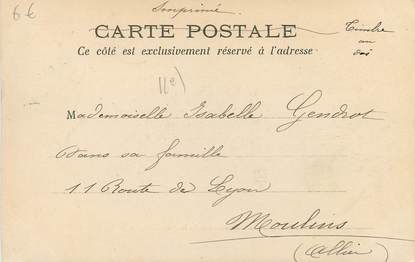 6€
Imprimé
CARTE POSTALE
Timbre
au
dos
Ce côté est exclusivement réservé à l'adresse
11e)
Mademoiselle Isabelle Gendrot
Dans sa famille
11 Route de Lyon
Moulins
(Allier)